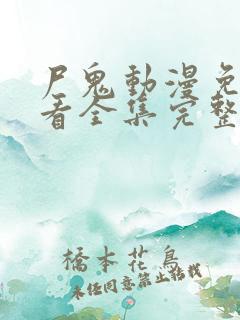 尸鬼動漫免
看全集完整
橋本花鳥
未经同意禁止转载